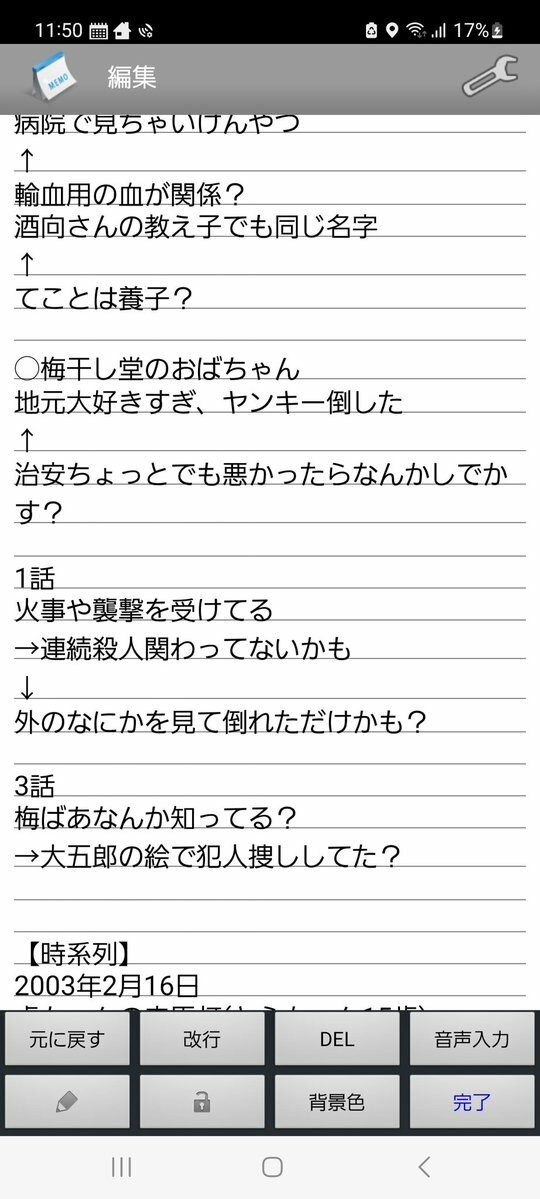 11:50
17%
MEMO
編集
病院で見ちゃいけんやつ
↑
輸血用の血が関係?
酒向さんの教え子でも同じ名字
↑
てことは養子?
○梅干し堂のおばちゃん
地元大好きすぎ、ヤンキー倒した
↑
治安ちょっとでも悪かったらなんかしでか
す?
1話
火事や襲撃を受けてる
→連続殺人関わってないかも
↓
外のなにかを見て倒れただけかも?
3話
梅ばあなんか知ってる?
→大五郎の絵で犯人捜ししてた?
【時系列】
2003年2月16日
元に戻す
改行
DEL
音声入力
背景色
完了